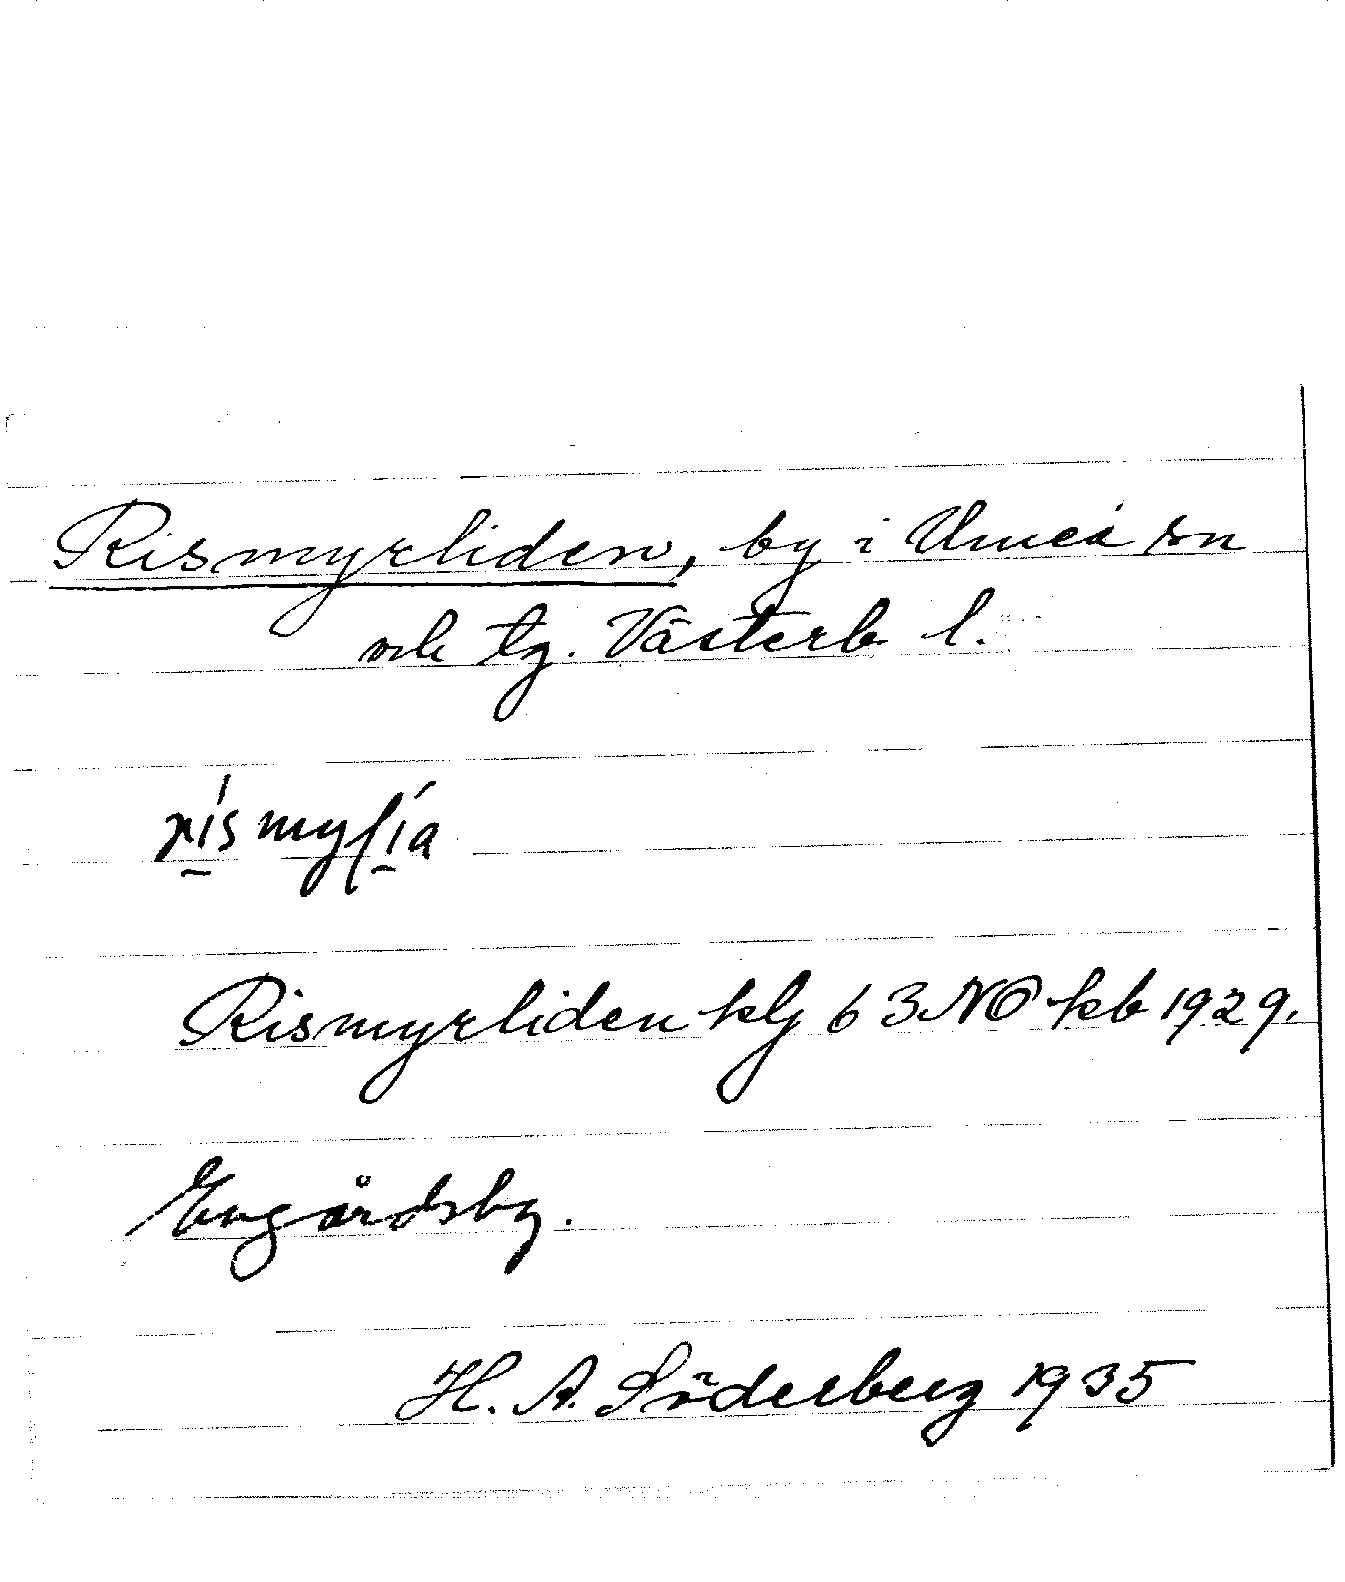 Rismyrliden, by i Umeå sn
och tg. Västerb l.
Rismyrliden klg 63 NO kb 1929.
Engårdsby.
H. A. Söderberg 1935